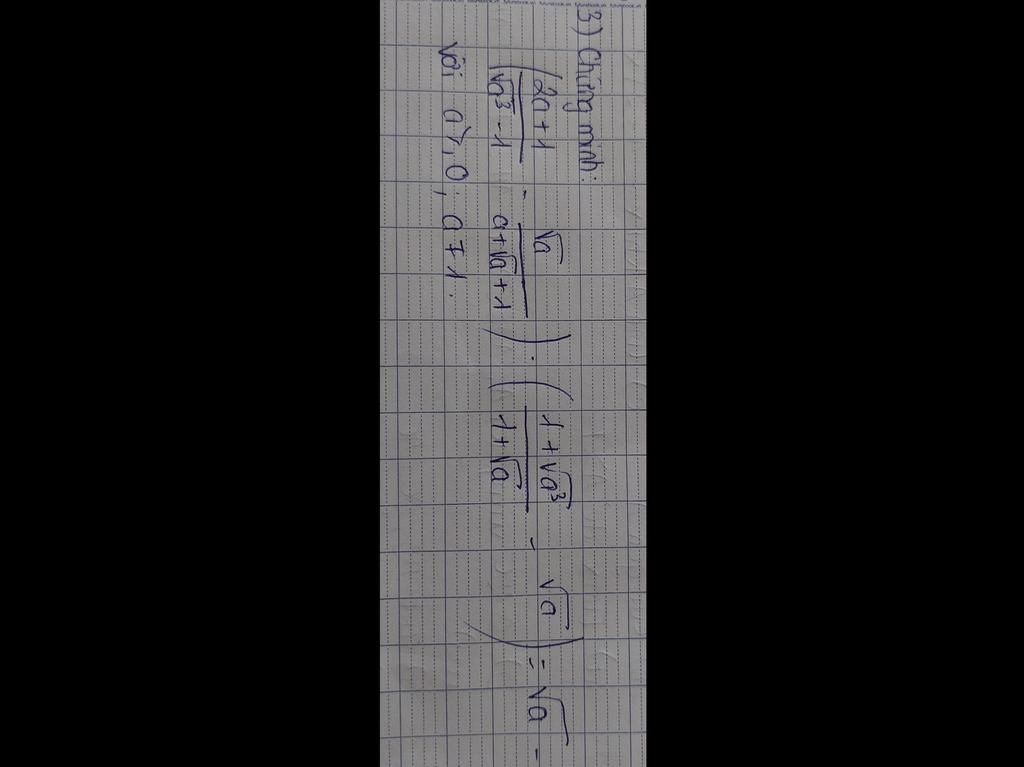 3) Chứng minh:
(2a+1/√a³-1 - √a/a+√a+1) · (1+√a³/1+√a - √a) = √a -
với a ≥ 0; a ≠ 1.